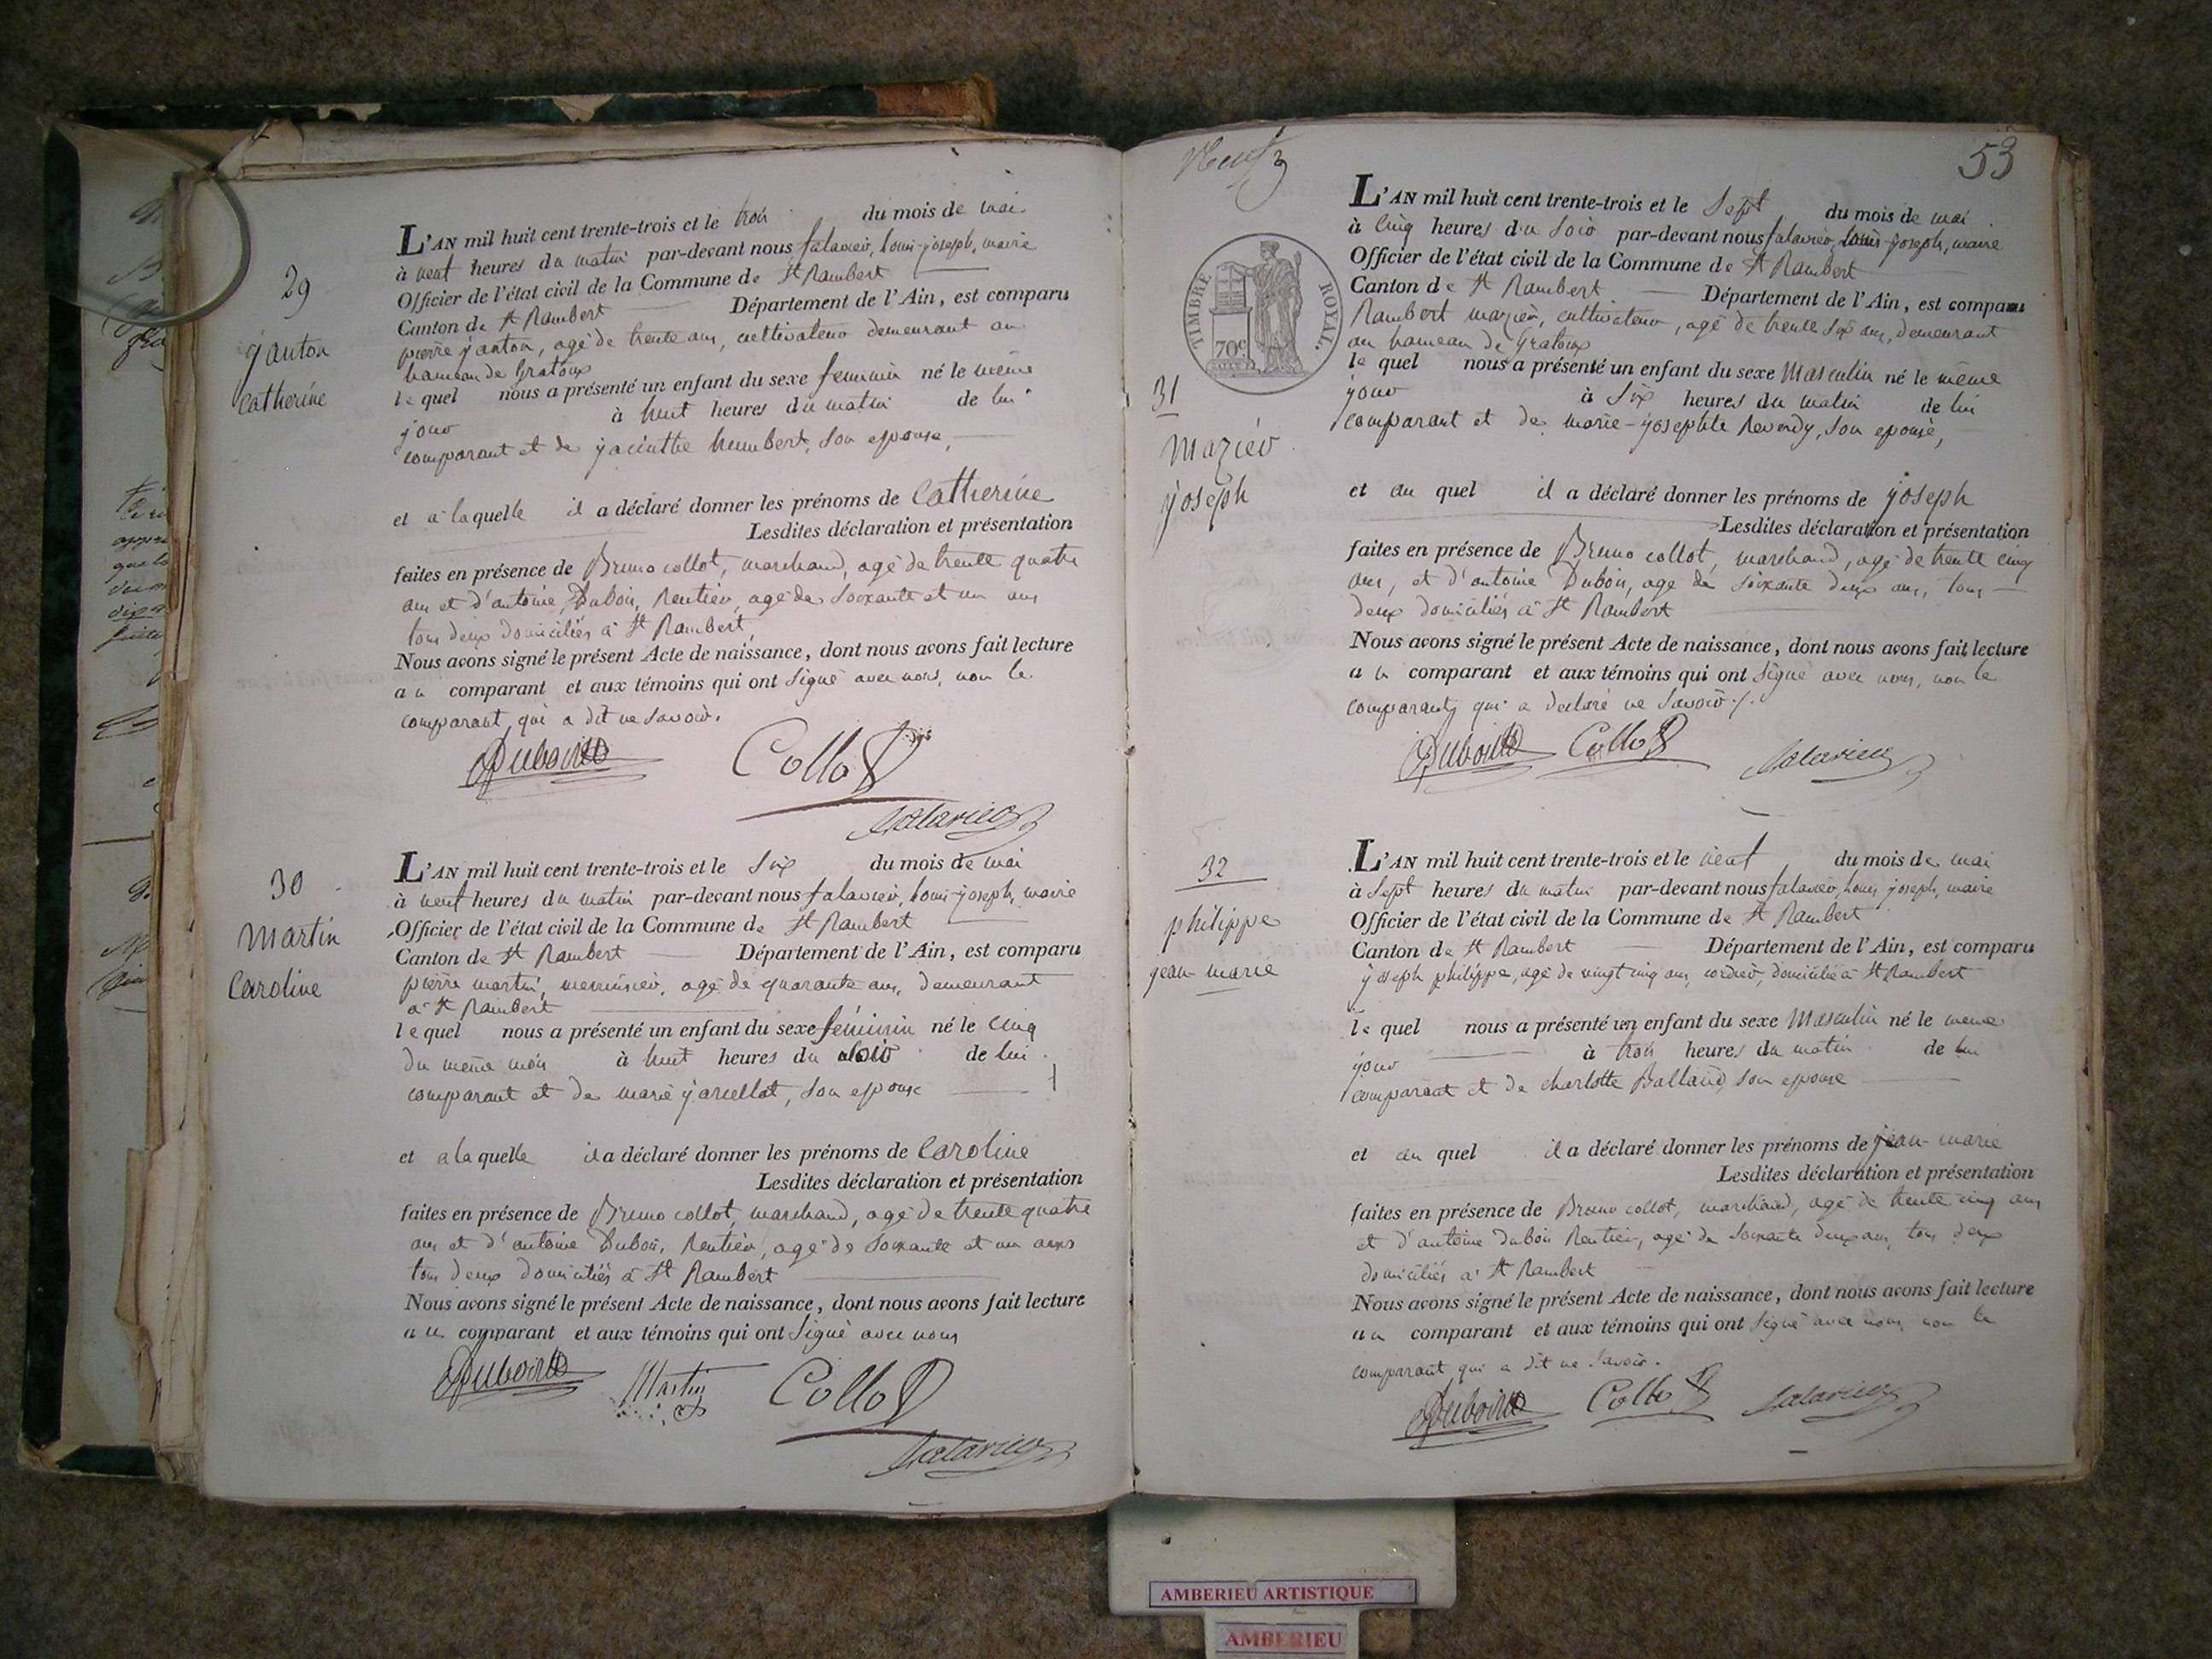 29
janton
Catherine
L'AN mil huit cent trente-trois et le trois du mois de mai
à neuf heures du matin par-devant nous falavier, louis-joseph, maire
Officier de l'état civil de la Commune de St Rambert
Canton de St Rambert Département de l'Ain, est comparu
pierre janton, agé de trente ans, cultivateur demeurant au
hameau de Gratoux
le quel nous a présenté un enfant du sexe feminin né le même
jour à huit heures du matin de lui
comparant et de jacinthe humbert, son epouse,
et à laquelle il a déclaré donner les prénoms de Catherine
Lesdites déclaration et présentation
faites en présence de Bruno collot, marchand, agé de trente quatre
ans et d'antoine Dubois, Rentier, agé de soixante et un ans
tous deux domiciliés à St Rambert,
Nous avons signé le présent Acte de naissance, dont nous avons fait lecture
au comparant et aux témoins qui ont signé avec nous, non le
comparant, qui a dit ne savoir.
Dubois Collot
falavier
30
Martin
Caroline
L'AN mil huit cent trente-trois et le six du mois de mai
à neuf heures du matin par-devant nous falavier, louis-joseph, maire
Officier de l'état civil de la Commune de St Rambert
Canton de St Rambert Département de l'Ain, est comparu
pierre martin, menuisier, agé de quarante ans, demeurant
à St Rambert
le quel nous a présenté un enfant du sexe féminin né le cinq
du même mois à huit heures du soir de lui
comparant et de marie jarcellot, son epouse
et a laquelle il a déclaré donner les prénoms de Caroline
Lesdites déclaration et présentation
faites en présence de Bruno collot, marchand, agé de trente quatre
ans et d'antoine Dubois, Rentier, agé de soixante et un ans
tous deux domiciliés à St Rambert
Nous avons signé le présent Acte de naissance, dont nous avons fait lecture
au comparant et aux témoins qui ont signé avec nous
Dubois Martin Collot
falavier
Neuf
53
TIMBRE ROYAL.
70c
31
Mazier
joseph
L'AN mil huit cent trente-trois et le sept du mois de mai
à cinq heures du soir par-devant nous falavier, louis-joseph, maire
Officier de l'état civil de la Commune de St Rambert
Canton de St Rambert Département de l'Ain, est comparu
Rambert mazier, cultivateur, agé de trente six ans, demeurant
au hameau de Gratoux
le quel nous a présenté un enfant du sexe Masculin né le même
jour à six heures du matin de lui
comparant et de marie-josephte Reverdy, son epouse,
et au quel il a déclaré donner les prénoms de joseph
Lesdites déclaration et présentation
faites en présence de Bruno collot, marchand, agé de trente cinq
ans, et d'antoine Dubois, agé de soixante deux ans, tous
deux domiciliés à St Rambert
Nous avons signé le présent Acte de naissance, dont nous avons fait lecture
au comparant et aux témoins qui ont signé avec nous, non le
comparant, qui a declaré ne savoir./.
Dubois Collot falavier
32
philippe
jean-marie
L'AN mil huit cent trente-trois et le neuf du mois de mai
à sept heures du matin par-devant nous falavier, louis joseph, maire
Officier de l'état civil de la Commune de St Rambert
Canton de St Rambert Département de l'Ain, est comparu
joseph philippe, agé de vingt cinq ans, cordier, domicilié à St Rambert
le quel nous a présenté un enfant du sexe Masculin né le même
jour à trois heures du matin de lui
comparant et de charlotte Balland, son epouse
et au quel il a déclaré donner les prénoms de jean-marie
Lesdites déclaration et présentation
faites en présence de Bruno collot, marchand, agé de trente cinq ans
et d'antoine Dubois Rentier, agé de soixante deux ans, tous deux
domiciliés à St Rambert
Nous avons signé le présent Acte de naissance, dont nous avons fait lecture
au comparant et aux témoins qui ont signé avec nous, non le
comparant, qui a dit ne savoir.
Dubois Collot falavier
AMBERIEU ARTISTIQUE
AMBERIEU